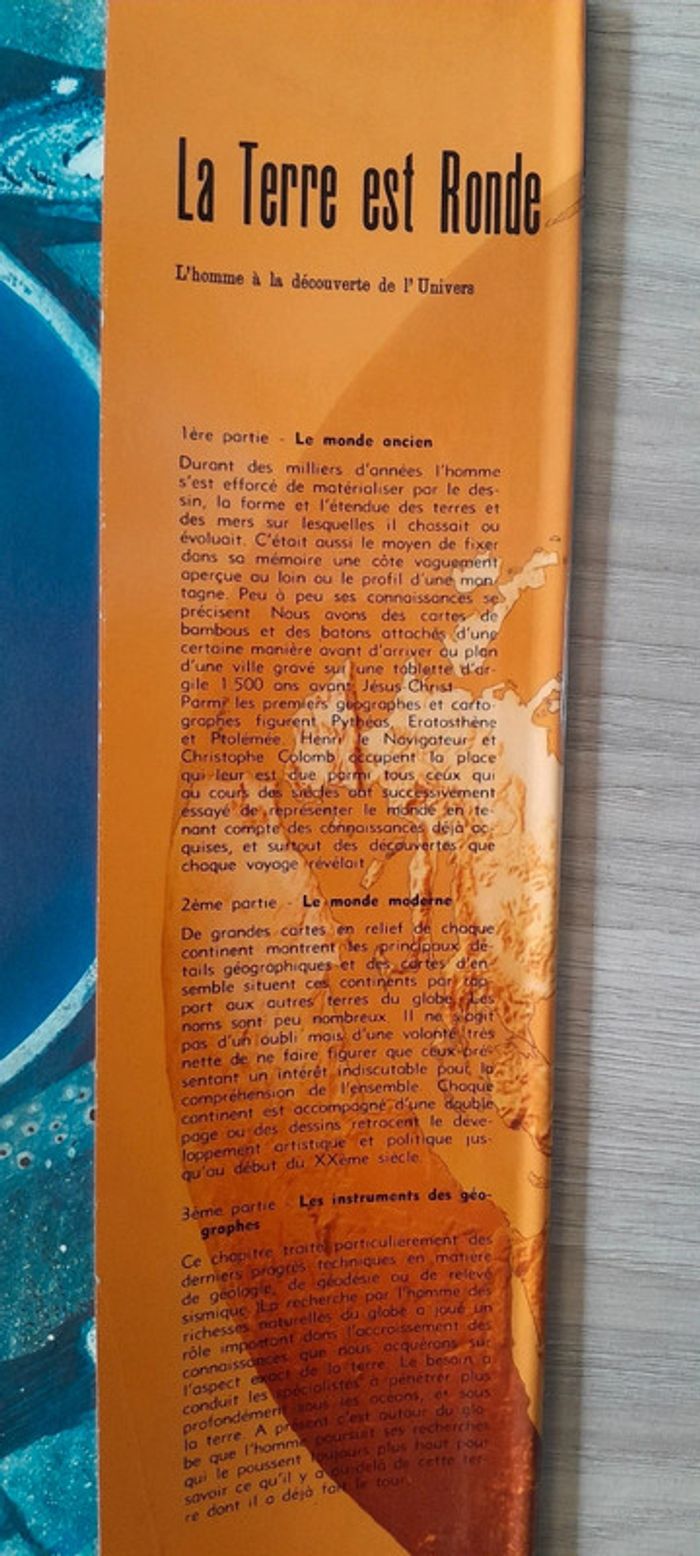 La Terre est Ronde
L'homme à la découverte de l'Univers
1ère partie - Le monde ancien
Durant des milliers d'années l'homme
s'est efforcé de matérialiser par le des-
sin, la forme et l'étendue des terres et
des mers sur lesquelles il chassait ou
évoluait. C'était aussi le moyen de fixer
dans sa mémoire une côte vaguement
aperçue au loin ou le profil d'une mon
tagne. Peu à peu ses connaissances se
précisent. Nous avons des cartes de
bambous et des batons attachés d'une
certaine manière avant d'arriver au plan
d'une ville gravé sur une tablette d'ar-
gile 1 500 ans avant Jésus-Christ
Parmi les premiers géographes et carto-
graphes figurent Pythéas, Eratosthène
et Ptolémée. Henri le Navigateur et
Christophe Colomb occupent la place
qui leur est due parmi tous ceux qui
au cours des siècles ont successivement
essayé de représenter le monde en te-
nant compte des connaissances déjà ac-
quises, et surtout des découvertes que
chaque voyage révélait
2ème partie - Le monde moderne
De grandes cartes en relief de chaque
continent montrent les principaux dé-
tails géographiques et des cartes d'en-
semble situent ces continents par rap-
port aux autres terres du globe. Les
noms sont peu nombreux. Il ne s'agit
pas d'un oubli mais d'une volonté très
nette de ne faire figurer que ceux pré-
sentant un intérêt indiscutable pour la
compréhension de l'ensemble. Chaque
continent est accompagné d'une double
page ou des dessins retracent le déve-
loppement artistique et politique jus-
qu'au début du XXème siècle.
3ème partie - Les instruments des géo-
graphes
Ce chapitre traite particulierement des
derniers progrès techniques en matière
de géologie, de géodésie ou de relevé
sismique. La recherche par l'homme des
richesses naturelles du globe a joué un
rôle important dans l'accroissement des
connaissances que nous acquérons sur
l'aspect exact de la terre. Le besoin a
conduit les spécialistes à pénétrer plus
profondément sous les océans, et sous
la terre. A présent c'est autour du glo-
be que l'homme poursuit ses recherches
qui le poussent toujours plus haut pour
savoir ce qu'il y a au-delà de cette ter-
re dont il a déjà fait le tour.